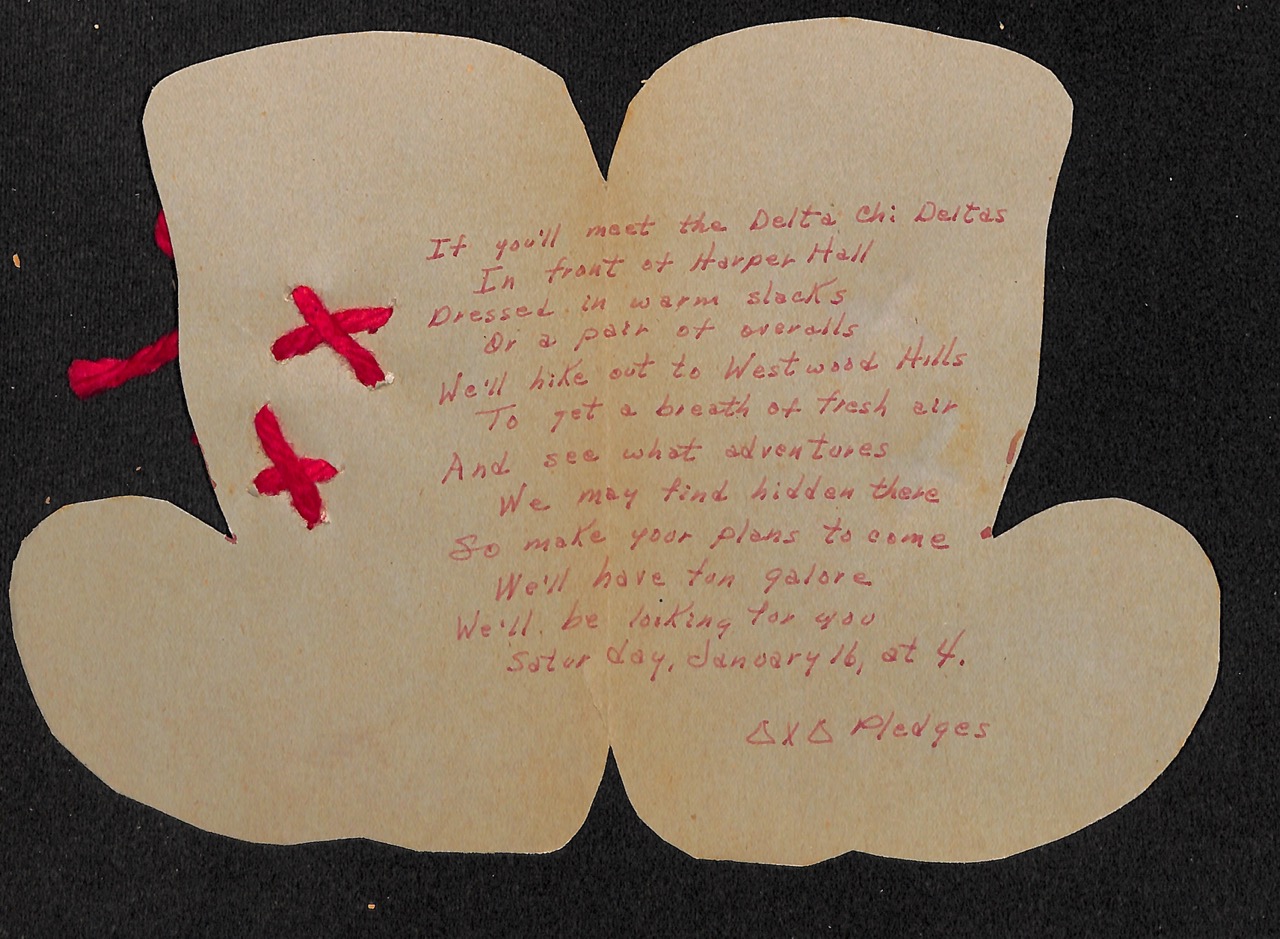 If you'll meet the Delta Chi Deltas
In front of Harper Hall
Dressed in warm slacks
Or a pair of overalls
We'll hike out to Westwood Hills
To get a breath of fresh air
And see what adventures
We may find hidden there
So make your plans to come
We'll have fun galore
We'll be looking for you
Saturday, January 16, at 4.
ΔΧΔ Pledges